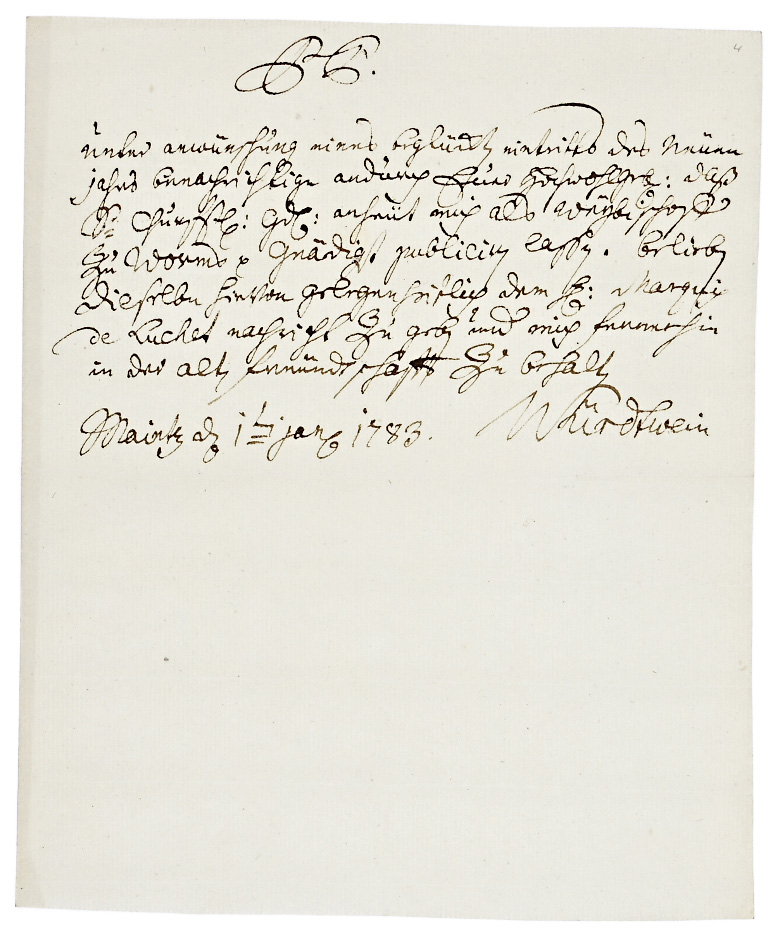 P. P.
4
Unter anwünschung eines beglückten eintritts des Neüen
jahrs benachrichtige andurch Euer Hochwohlgeb: daß
Sr. Churfftl: Gd: anheüt mich als Weyhbischoff
Zu Worms gnädigst publiciren lassen. belieben
dieselbe hiervon gelegenheitlich dem H: Marquis
de Luchet nachricht zu geben und mich fernerhin
in der alten freündschafft Zu behalten
Maintz den 1ten jan. 1783. Würdtwein